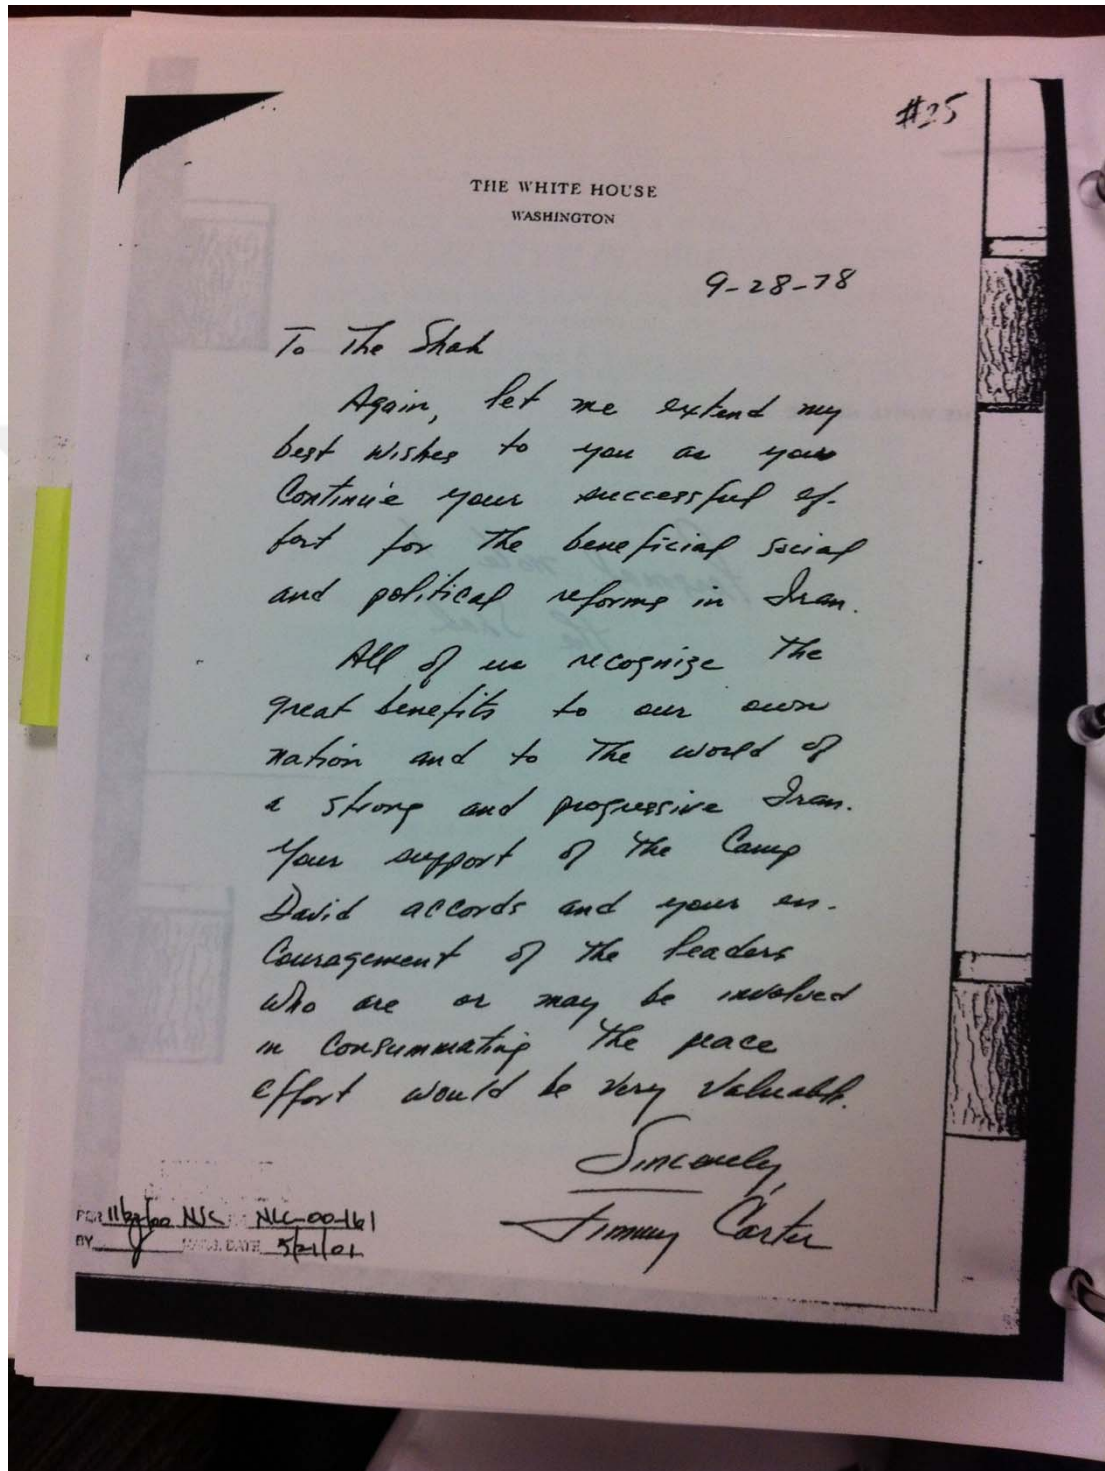 #25
THE WHITE HOUSE
WASHINGTON
9-28-78
To The Shah
Again, let me extend my
best wishes to you as you
Continue your successful ef-
fort for the beneficial social
and political reforms in Iran.
All of us recognize the
great benefits to our own
nation and to the world of
a strong and progressive Iran.
Your support of the Camp
David accords and your en-
Couragement of the leaders
who are or may be involved
in Consummating the peace
effort would be very valuable.
Sincerely,
Jimmy Carter
PER 11/22/00 NSC NLC-00-161
BY DATE 5/21/01